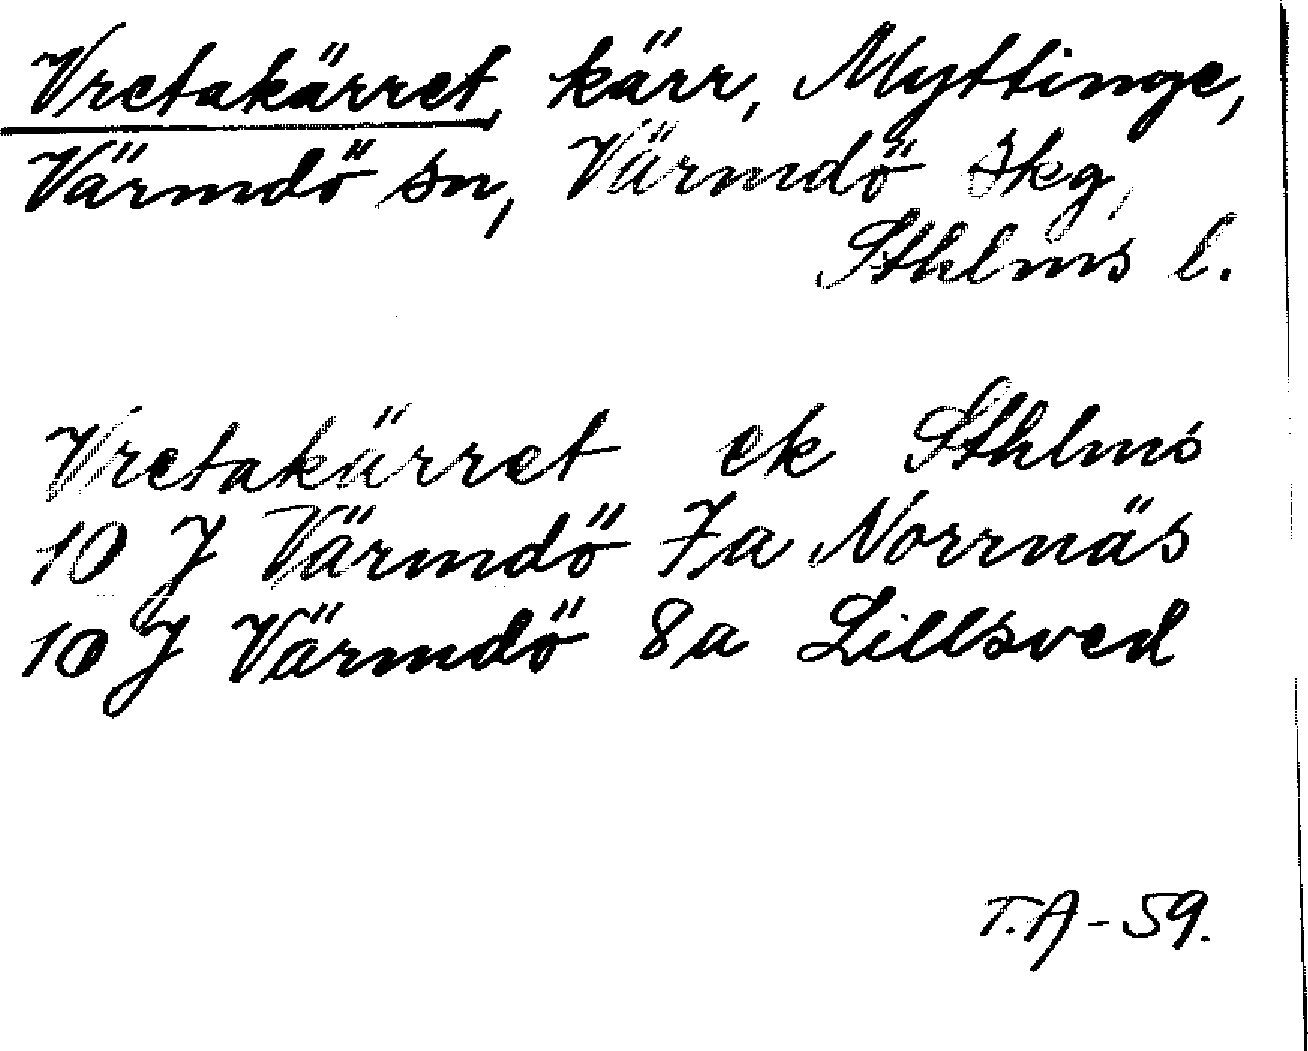 Vretakärret, kärr, Myttinge,
Värmdö sn, Värmdö skg,
Sthlms l.
Vretakärret ek Sthlms
10 J Värmdö 7a Norrnäs
10 J Värmdö 8a Lillsved
T.A - 59.